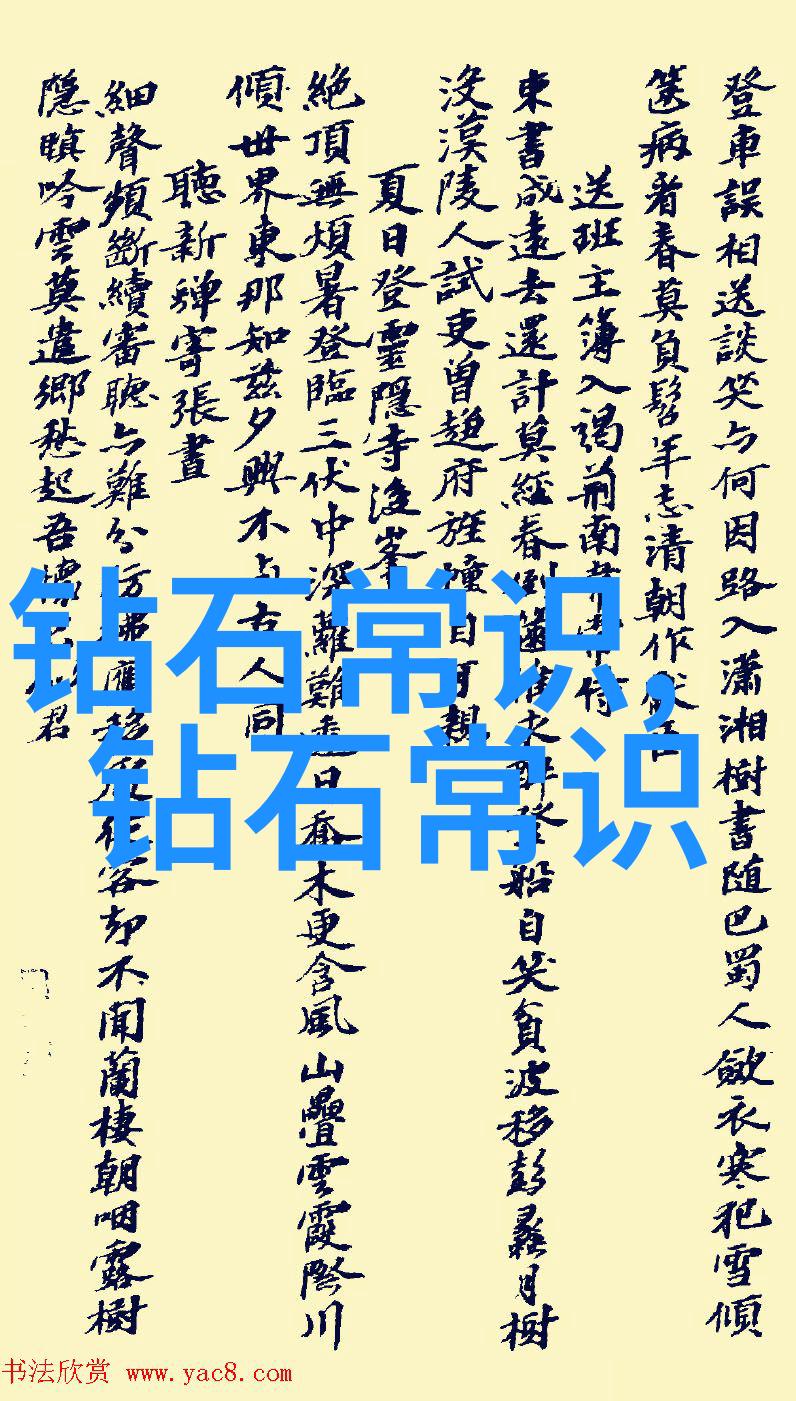 登車誤相送談笑亦何因路入瀟湘樹書隨巴蜀人斂衣寒犯雪傾
篋病看春莫負髫年志清朝作
送班主簿入謁荊南
東書成遠去還計莫經春倒篋登船自笑貧波移彭蠡月樹
沒漢陵人試吏曾趨府旌幢自可親
夏日登靈隱寺後峯
絶頂無煩暑登臨三伏中深蘿難透日喬木更含風山疊雲霞際川
傾世界東那知茲夕興不與古人同
聽新蟬寄張晝
細聲頻斷續審聽亦難分應移客却不聞蘭棲朝咽露樹
隱瞑吟雲莫遣鄉愁起吾懷君
钻石常识,
钻石常识
书法欣赏 www.yac8.com